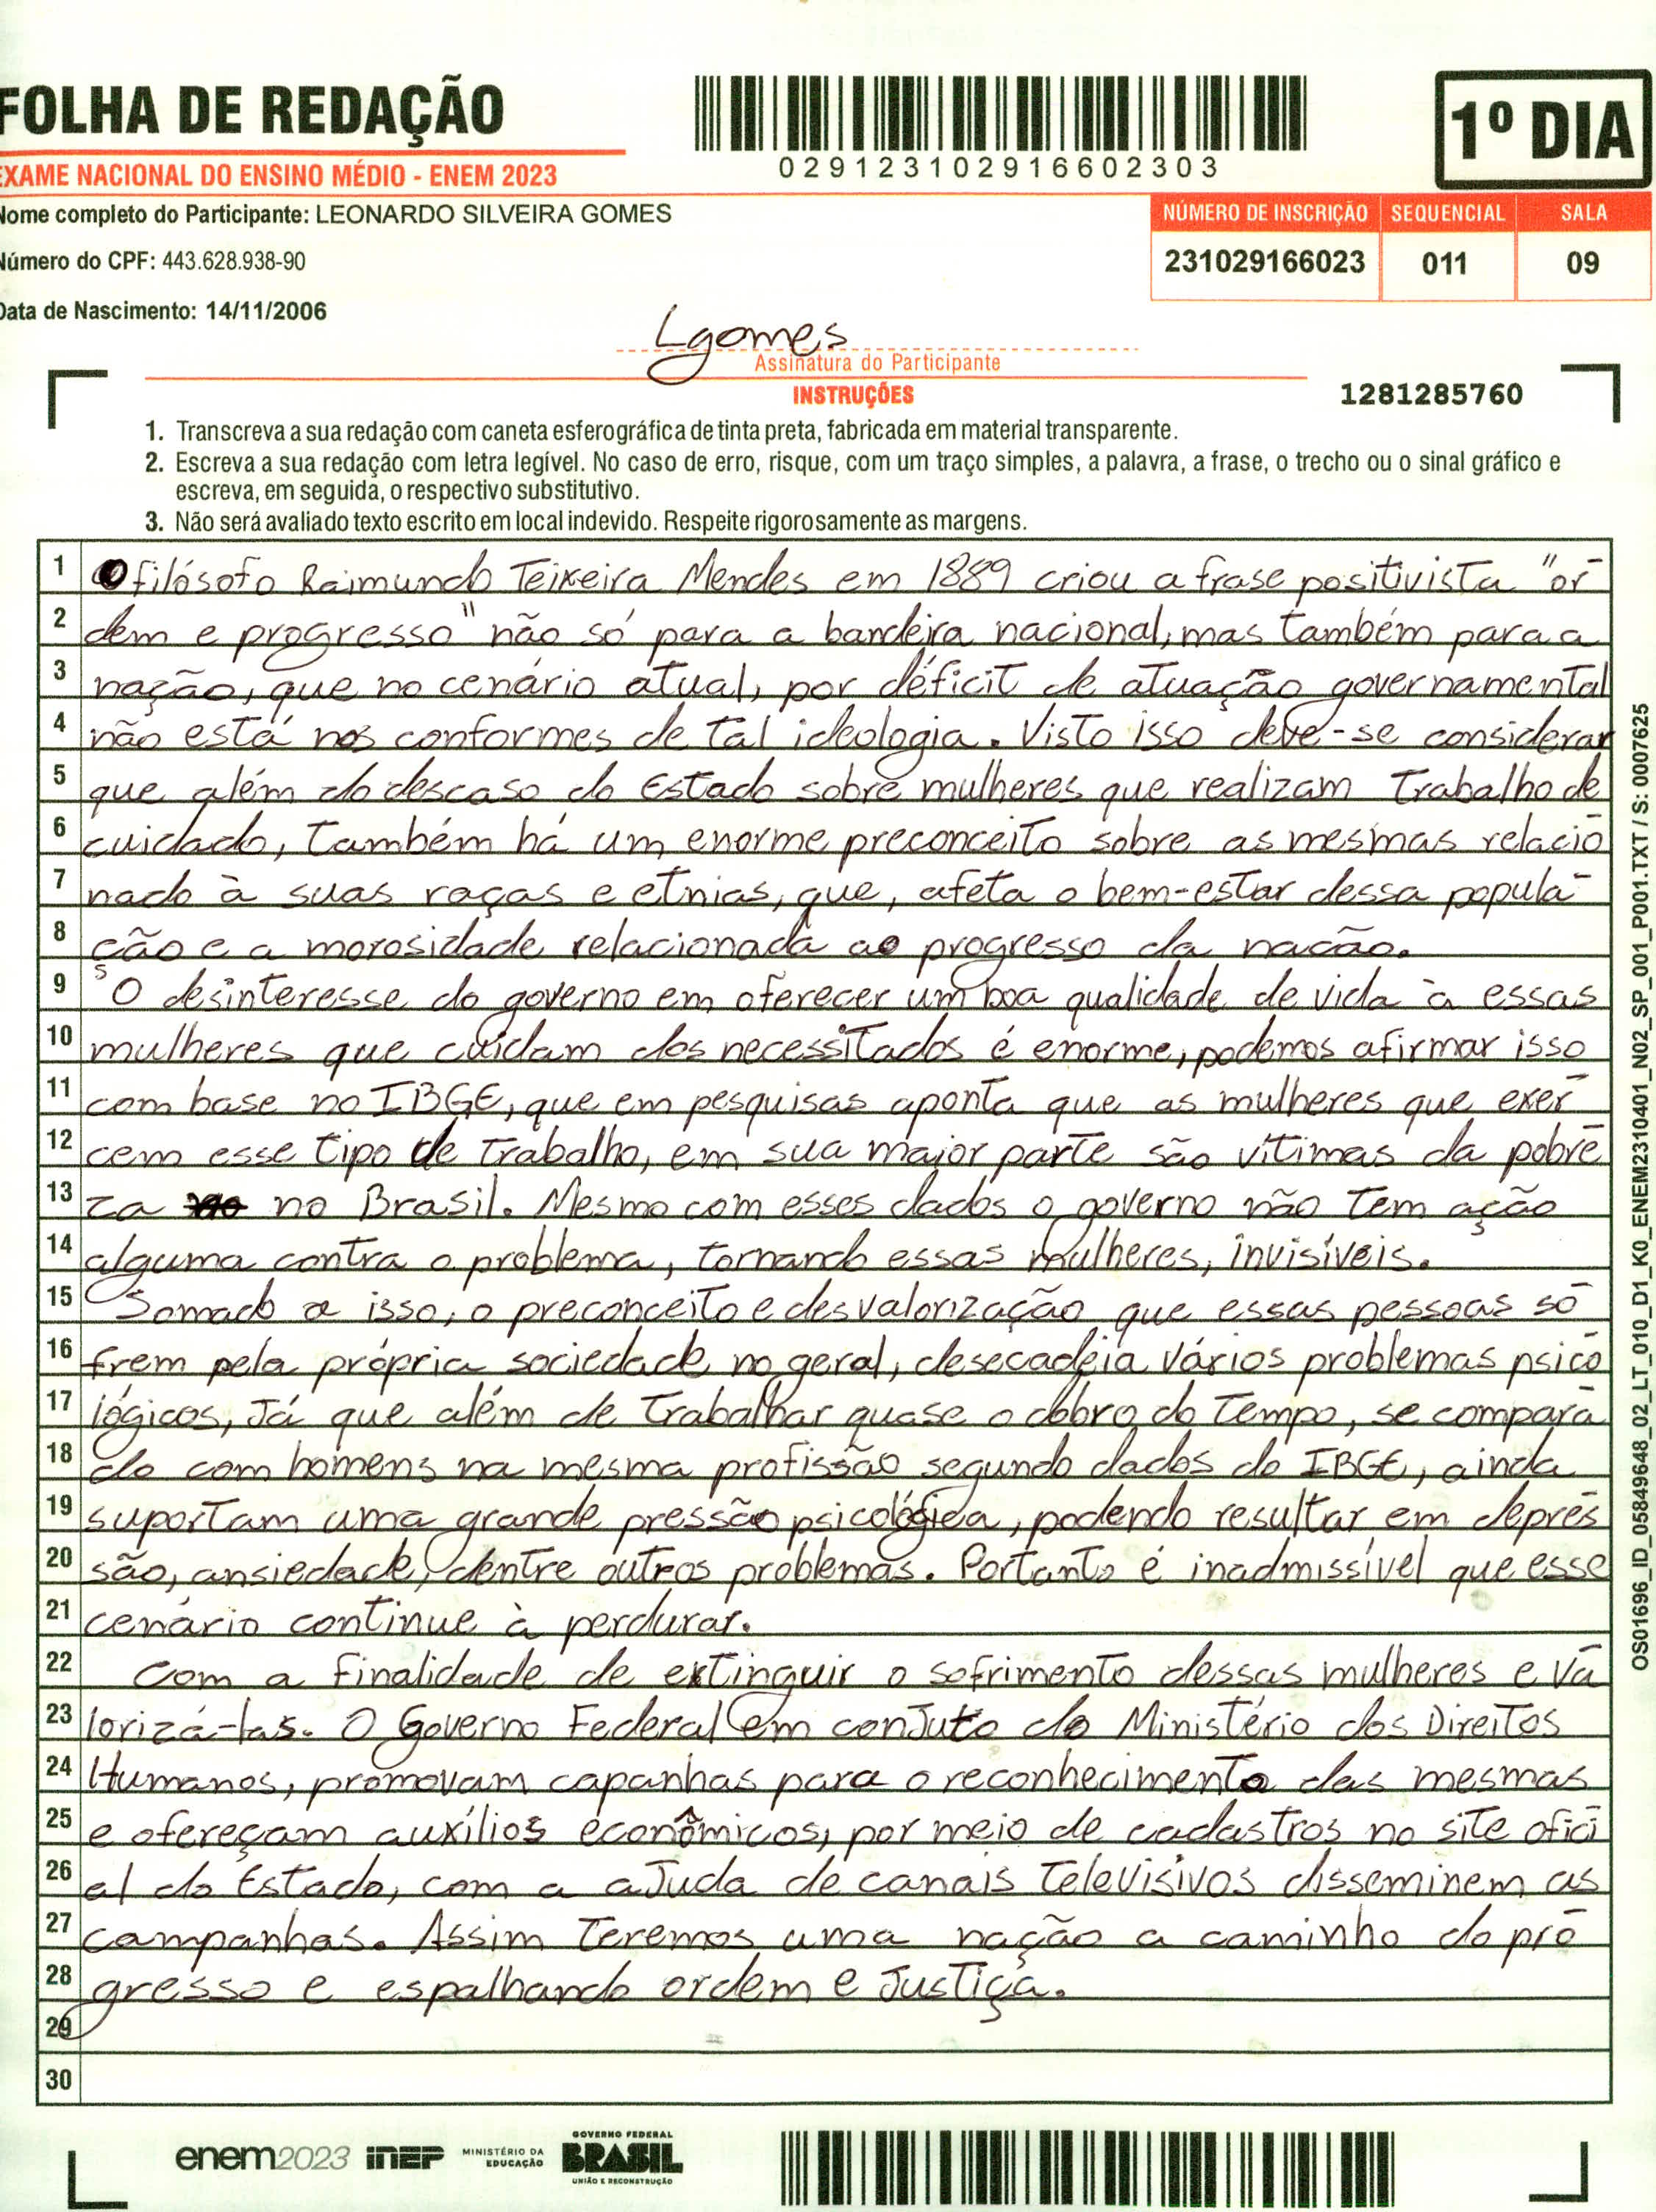 FOLHA DE REDAÇÃO
1º DIA
029123102916602303
EXAME NACIONAL DO ENSINO MÉDIO - ENEM 2023
Nome completo do Participante: LEONARDO SILVEIRA GOMES
NÚMERO DE INSCRIÇÃO SEQUENCIAL SALA
Número do CPF: 443.628.938-90
231029166023 011 09
Data de Nascimento: 14/11/2006
Lgomes
Assinatura do Participante
INSTRUÇÕES
1281285760
1. Transcreva a sua redação com caneta esferográfica de tinta preta, fabricada em material transparente.
2. Escreva a sua redação com letra legível. No caso de erro, risque, com um traço simples, a palavra, a frase, o trecho ou o sinal gráfico e
escreva, em seguida, o respectivo substitutivo.
3. Não será avaliado texto escrito em local indevido. Respeite rigorosamente as margens.
1 O filósofo Raimundo Teixeira Mendes em 1889 criou a frase positivista "or-
2 dem e progresso" não só para a bandeira nacional, mas também para a
3 nação, que no cenário atual, por déficit de atuação governamental
4 não está nos conformes de tal ideologia. Visto isso deve-se considerar
5 que além do descaso do Estado sobre mulheres que realizam trabalho de
6 cuidado, também há um enorme preconceito sobre as mesmas relacio-
7 nado à suas raças e etnias, que, afeta o bem-estar dessa popula-
8 ção e a morosidade relacionada ao progresso da nação.
9 O desinteresse do governo em oferecer um boa qualidade de vida à essas
10 mulheres que cuidam dos necessitados é enorme, podemos afirmar isso
11 com base no IBGE, que em pesquisas aponta que as mulheres que exer-
12 cem esse tipo de trabalho, em sua maior parte são vítimas da pobre-
13 za no Brasil. Mesmo com esses dados o governo não tem ação
14 alguma contra o problema, tornando essas mulheres, invisíveis.
15 Somado a isso, o preconceito e desvalorização que essas pessoas so-
16 frem pela própria sociedade no geral, desecadeia vários problemas psico-
17 lógicos, Já que além de trabalhar quase o dobro do tempo, se compara-
18 do com homens na mesma profissão segundo dados do IBGE, ainda
19 suportam uma grande pressão psicológica, podendo resultar em depres-
20 são, ansiedade, dentre outros problemas. Portanto é inadmissível que esse
21 cenário continue à perdurar.
22 Com a finalidade de extinguir o sofrimento dessas mulheres e va-
23 lorizá-las. O Governo Federal em conjuto do Ministério dos Direitos
24 Humanos, promovam capanhas para o reconhecimento das mesmas
25 e ofereçam auxílios econômicos, por meio de cadastros no site ofici-
26 al do Estado, com a ajuda de canais televisivos disseminem as
27 campanhas. Assim teremos uma nação a caminho do pro-
28 gresso e espalhando ordem e Justiça.
29
30
OS01696_ID_05849648_02_LT_010_D1_K0_ENEM2310401_N02_SP_001_P001.TXT / S: 0007625
enem2023 inep MINISTÉRIO DA EDUCAÇÃO GOVERNO FEDERAL BRASIL UNIÃO E RECONSTRUÇÃO